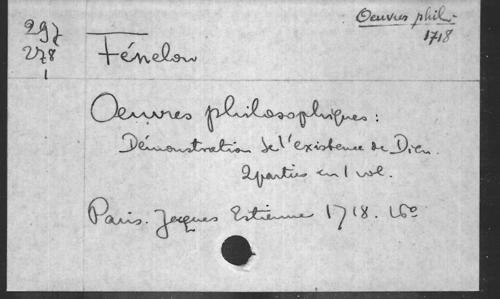 297
278
1
Oeuvres phil.
1718
Fénelon
Oeuvres philosophiques :
Démonstration de l'existence de Dieu.
2 parties en 1 vol.
Paris. Jacques Estienne 1718. 16º